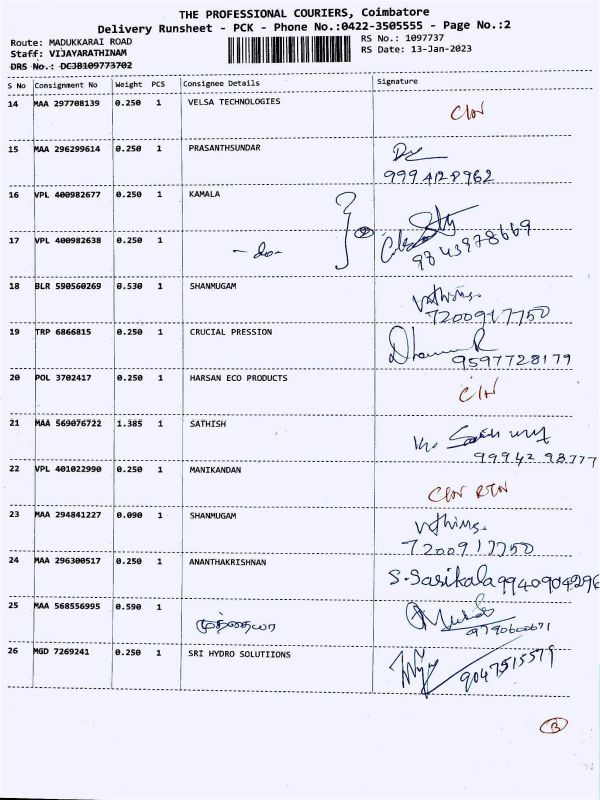 THE PROFESSIONAL COURIERS, Coimbatore
Delivery Runsheet - PCK - Phone No.:0422-3505555 - Page No.:2
Route: MADUKKARAI ROAD RS No.: 1097737
Staff: VIJAYARATHINAM RS Date: 13-Jan-2023
DRS No.: DCJB109773702
S No Consignment No Weight PCS Consignee Details Signature
14 MAA 297708139 0.250 1 VELSA TECHNOLOGIES
15 MAA 296299614 0.250 1 PRASANTHSUNDAR
9994128962
16 VPL 400982677 0.250 1 KAMALA
17 VPL 400982638 0.250 1 - do - 9843978669
18 BLR 590560269 0.530 1 SHANMUGAM
7200917750
19 TRP 6866815 0.250 1 CRUCIAL PRESSION
9597728179
20 POL 3702417 0.250 1 HARSAN ECO PRODUCTS
21 MAA 569076722 1.385 1 SATHISH
9994298777
22 VPL 401022990 0.250 1 MANIKANDAN
23 MAA 294841227 0.090 1 SHANMUGAM
7200917750
24 MAA 296300517 0.250 1 ANANTHAKRISHNAN S. Sasikala 9940904296
25 MAA 568556995 0.590 1
முத்தையா 9790600671
26 MGD 7269241 0.250 1 SRI HYDRO SOLUTIIONS 9047515579
B